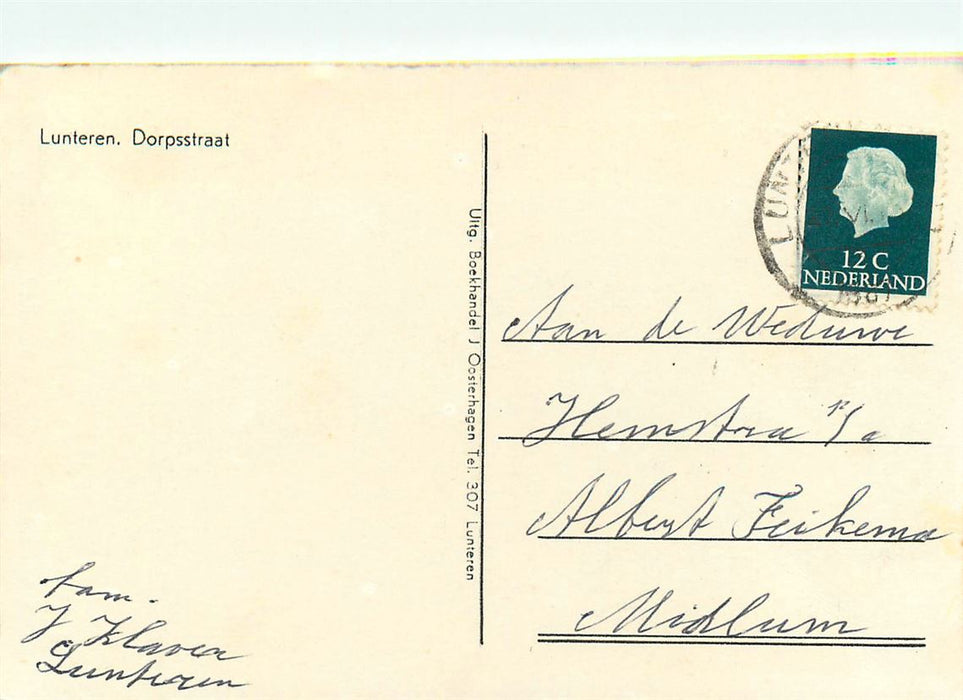 Lunteren. Dorpsstraat
Uitg. Boekhandel J Oosterhagen Tel. 307 Lunteren
LUNT
12 C
NEDERLAND
Aan de Weduwe
Hemstra p/a
Albert Feikema
Midlum
fam.
J Klaver
Lunteren